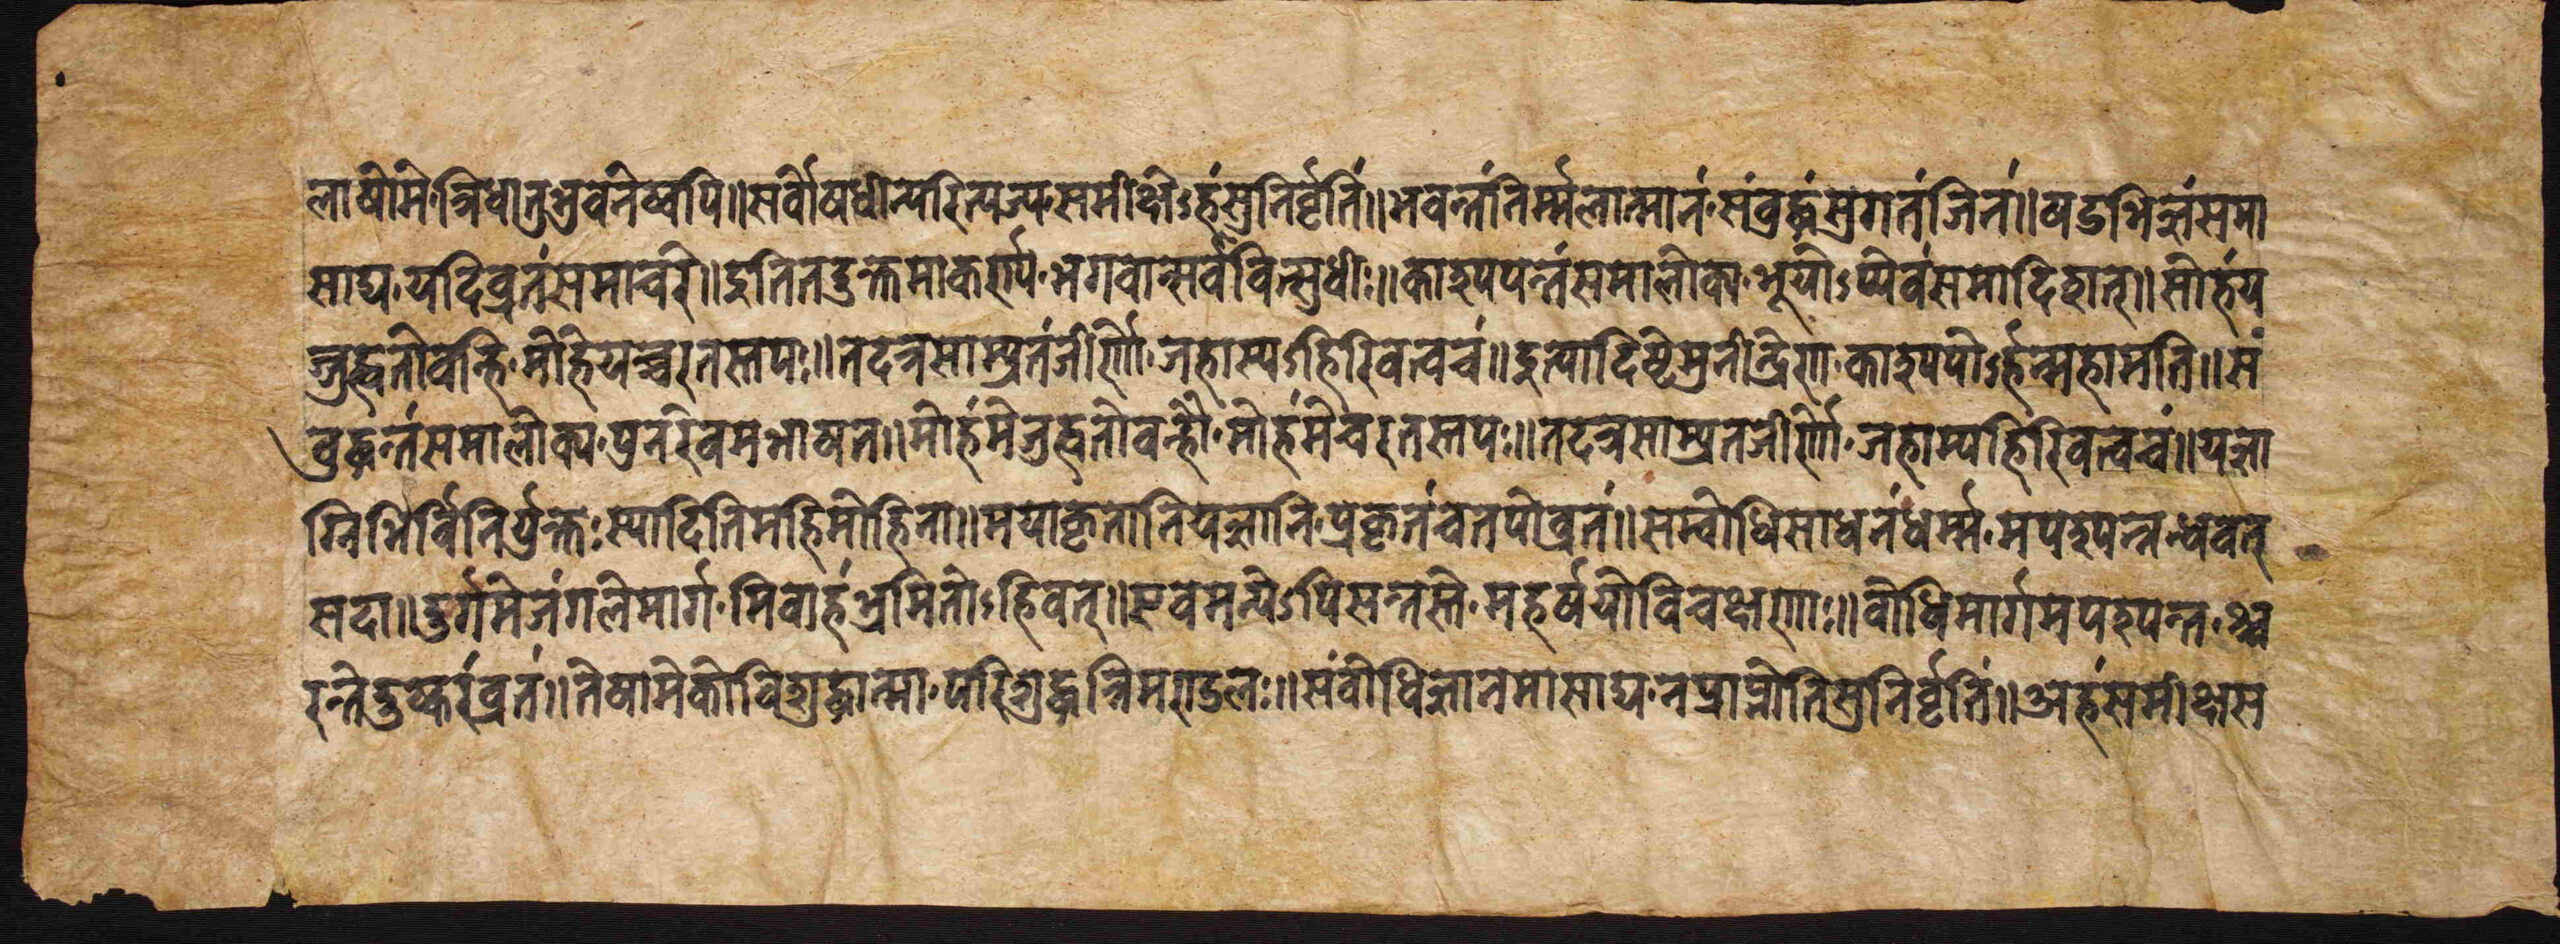 लाषोमेत्रिधातुभुवनेष्वपि॥सर्वौषधीन्परित्यज्य॰समीक्षेऽहंसुनिर्वृतिं॥भवन्तंनिर्म्मलात्मानं॰संबुद्धंसुगतंजिनं॥षडभिज्ञंसमा
साद्य॰यदिव्रतंसमाचरे॥इतितदुक्तमाकर्ण्य॰भगवान्सर्वविन्सुधीः॥काश्यपन्तंसमालोक्य॰भूयोऽप्येवंसमादिशत्॥मोहंय
ज्जुह्वतोवह्नि॰मोहंयच्चरतस्तपः॥तदत्रसाम्प्रतंजीर्णां॰जहास्यऽहिरिवत्वचं॥इत्यादिष्टेमुनीन्द्रेण॰काश्यपोऽर्हन्महामति॥सं
बुद्धन्तंसमालोक्य॰पुनरेवमभाषत॥मोहंमेजुह्वतोवह्नौ॰मोहंमेचरतस्तपः॥तदत्रसाम्प्रतजीर्णां॰जहाम्यहिरिवत्वचं॥यज्ञा
ग्निभिर्विनिर्मुक्तः॰स्यादितिमहिमोहिना॥मयाकृतानियज्ञानि॰प्रकृतंचतपोव्रतं॥सम्बोधिसाधनंधर्म्म॰मपश्यन्नन्धवत्
सदा॥दुर्गमेजंगलेमार्ग॰मिवाहंभ्रमितोऽहिवत्॥एवमन्येऽपिसन्तस्ते॰महर्षयोविचक्षणाः॥बोधिमार्गमपश्यन्त॰श्च
रन्तेदुष्करंव्रतं॥तेषामेकोविशुद्धात्मा॰परिशुद्धत्रिमण्डलः॥संबोधिज्ञानमासाद्य॰नप्राप्नोतिसुनिर्वृतिं॥अहंसमीक्षस